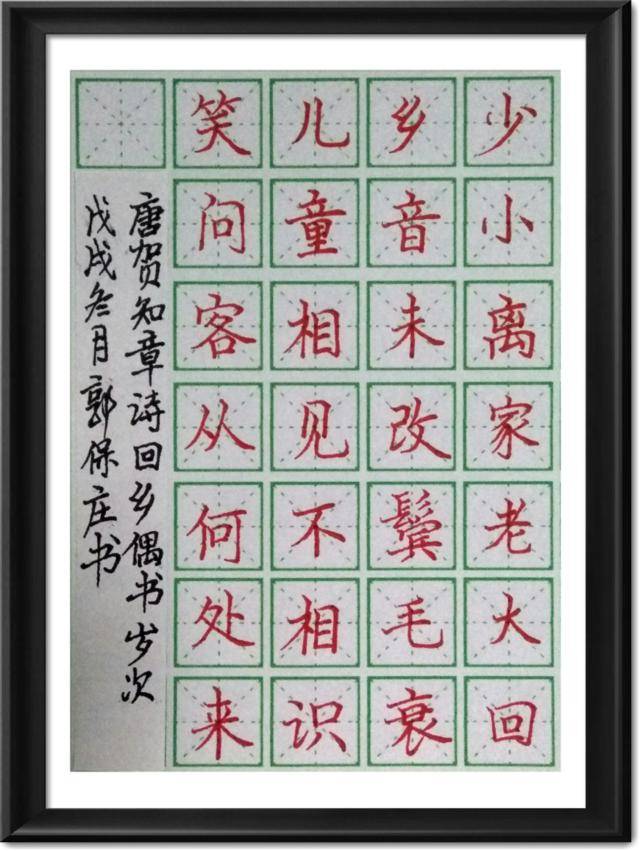 少小离家老大回
乡音未改鬓毛衰
儿童相见不相识
笑问客从何处来
唐贺知章诗回乡偶书岁次
戊戌叁月郭保庄书